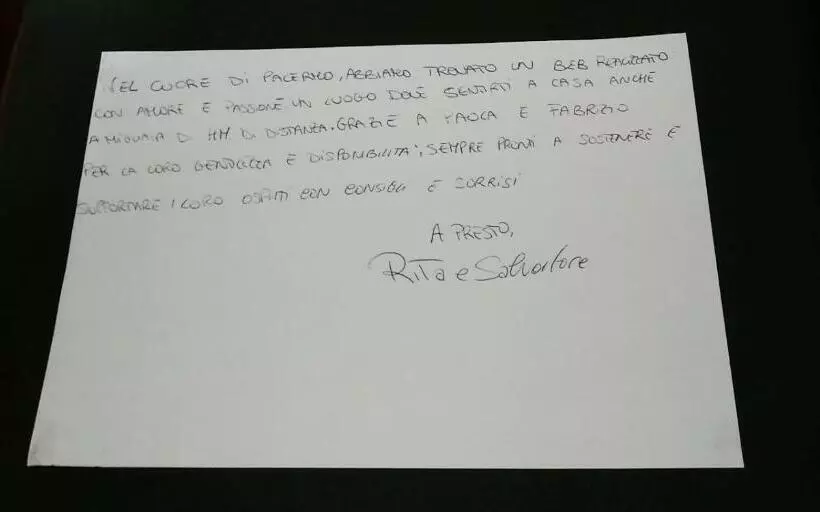 NEL CUORE DI PALERMO, ABBIAMO TROVATO UN B&B REALIZZATO
CON AMORE E PASSIONE UN LUOGO DOVE SENTIRTI A CASA ANCHE
A MIGLIAIA DI KM DI DISTANZA. GRAZIE A PAOLA E FABRIZIO
PER LA LORO GENTILEZZA E DISPONIBILITÀ; SEMPRE PRONTI A SOSTENERE E
SUPPORTARE I LORO OSPITI CON CONSIGLI E SORRISI
A PRESTO,
Rita e Salvatore